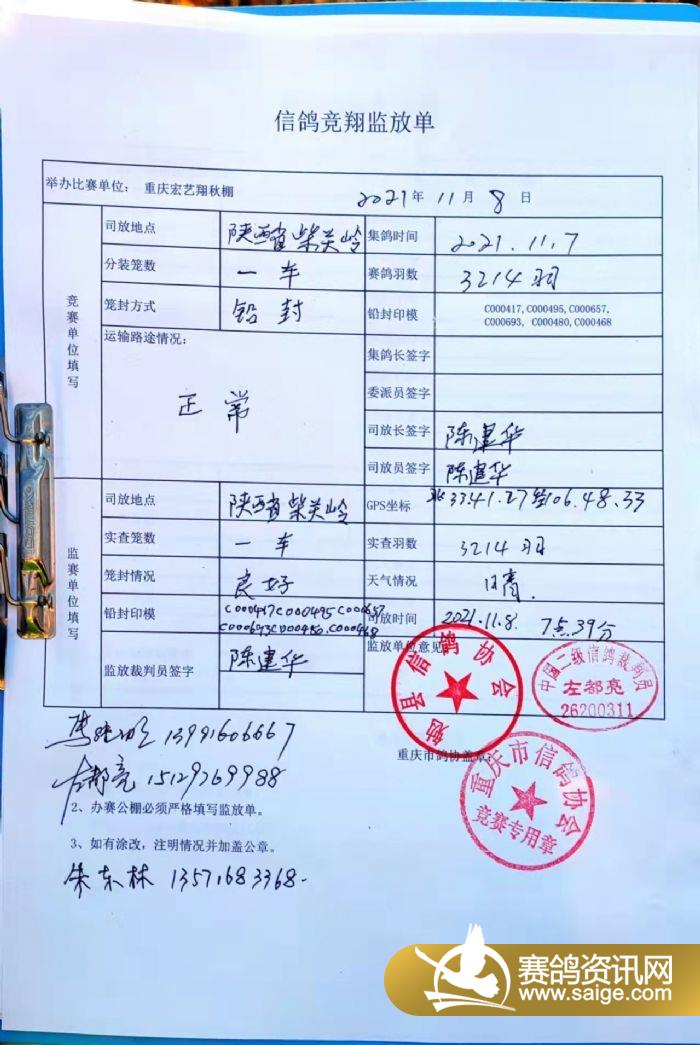 信鸽竞翔监放单
举办比赛单位: 重庆宏艺翔秋棚 2021年 11月 8日
竞赛单位填写
司放地点 陕西省柴关岭 集鸽时间 2021.11.7
分装笼数 一车 赛鸽羽数 3214羽
笼封方式 铅封 铅封印模 C000417, C000495, C000657,
C000693, C000480, C000468
运输路途情况: 集鸽长签字
正常 委派员签字
司放长签字 陈建华
司放员签字 陈建华
监赛单位填写
司放地点 陕西省柴关岭 GPS坐标 北33.41.27 106.48.33
实查笼数 一车 实查羽数 3214羽
笼封情况 良好 天气情况 晴
铅封印模 C000417C000495C000657 司放时间 2021.11.8. 7点39分
C000693C000480.C000468
监放裁判员签字 陈建华 监放单位意见
勉县信鸽协会
中国二级信鸽裁判员
左都亮
26200311
13991606667
重庆市鸽协盖章:
重庆市信鸽协会
竞赛专用章
左都亮 15129769988
2、办赛公棚必须严格填写监放单。
3、如有涂改，注明情况并加盖公章。
朱东林 13571683368
赛鸽资讯网
www.saige.com